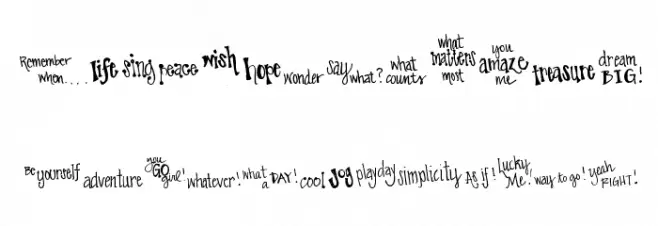 Remember when.... life sing peace wish hope wonder say what? what counts what matters most you amaze me treasure dream BIG!
Be yourself adventure you GO girl! whatever! what a DAY! cool Joy playday simplicity As if! Lucky Me! way to go! yeah RIGHT!